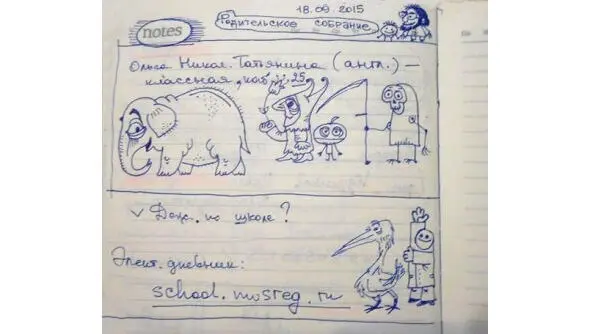 18.09.2015
Родительское собрание
notes
Ольга Никол. Татьянина (англ.) –
классная, каб. 25
✓ Деж. по школе?
Элект. дневник:
school.mosreg.ru